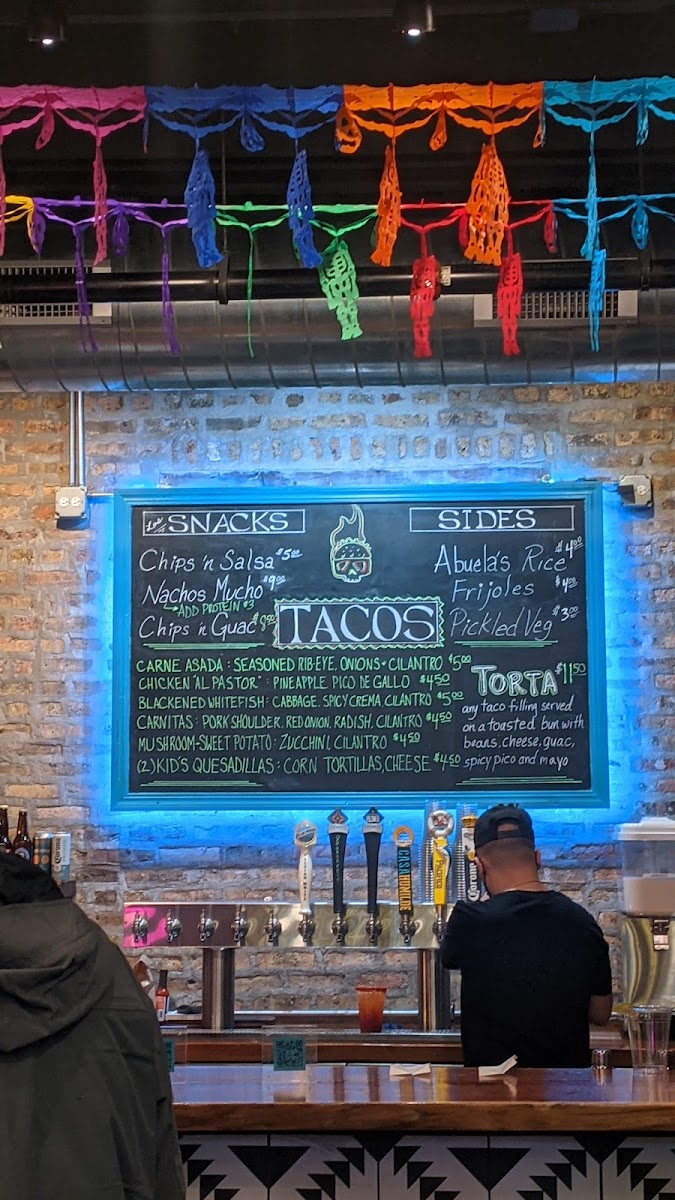 SNACKS
Chips 'n Salsa $5.00
Nachos Mucho $9.00
ADD PROTEIN $3
Chips 'n Guac $8.00
SIDES
Abuela's Rice $4.00
Frijoles $4.00
Pickled Veg $3.00
TACOS
CARNE ASADA : SEASONED RIB-EYE, ONIONS + CILANTRO $5.00
CHICKEN "AL PASTOR" : PINEAPPLE PICO DE GALLO $4.50
BLACKENED WHITEFISH : CABBAGE, SPICY CREMA, CILANTRO $5.00
CARNITAS : PORK SHOULDER, RED ONION, RADISH, CILANTRO $4.50
MUSHROOM-SWEET POTATO : ZUCCHINI, CILANTRO $4.50
(2) KID'S QUESADILLAS : CORN TORTILLAS, CHEESE $4.50
TORTA $11.50
any taco filling served
on a toasted bun with
beans, cheese, guac,
spicy pico and mayo
CASA HUMILDE
Pacifico
Corona